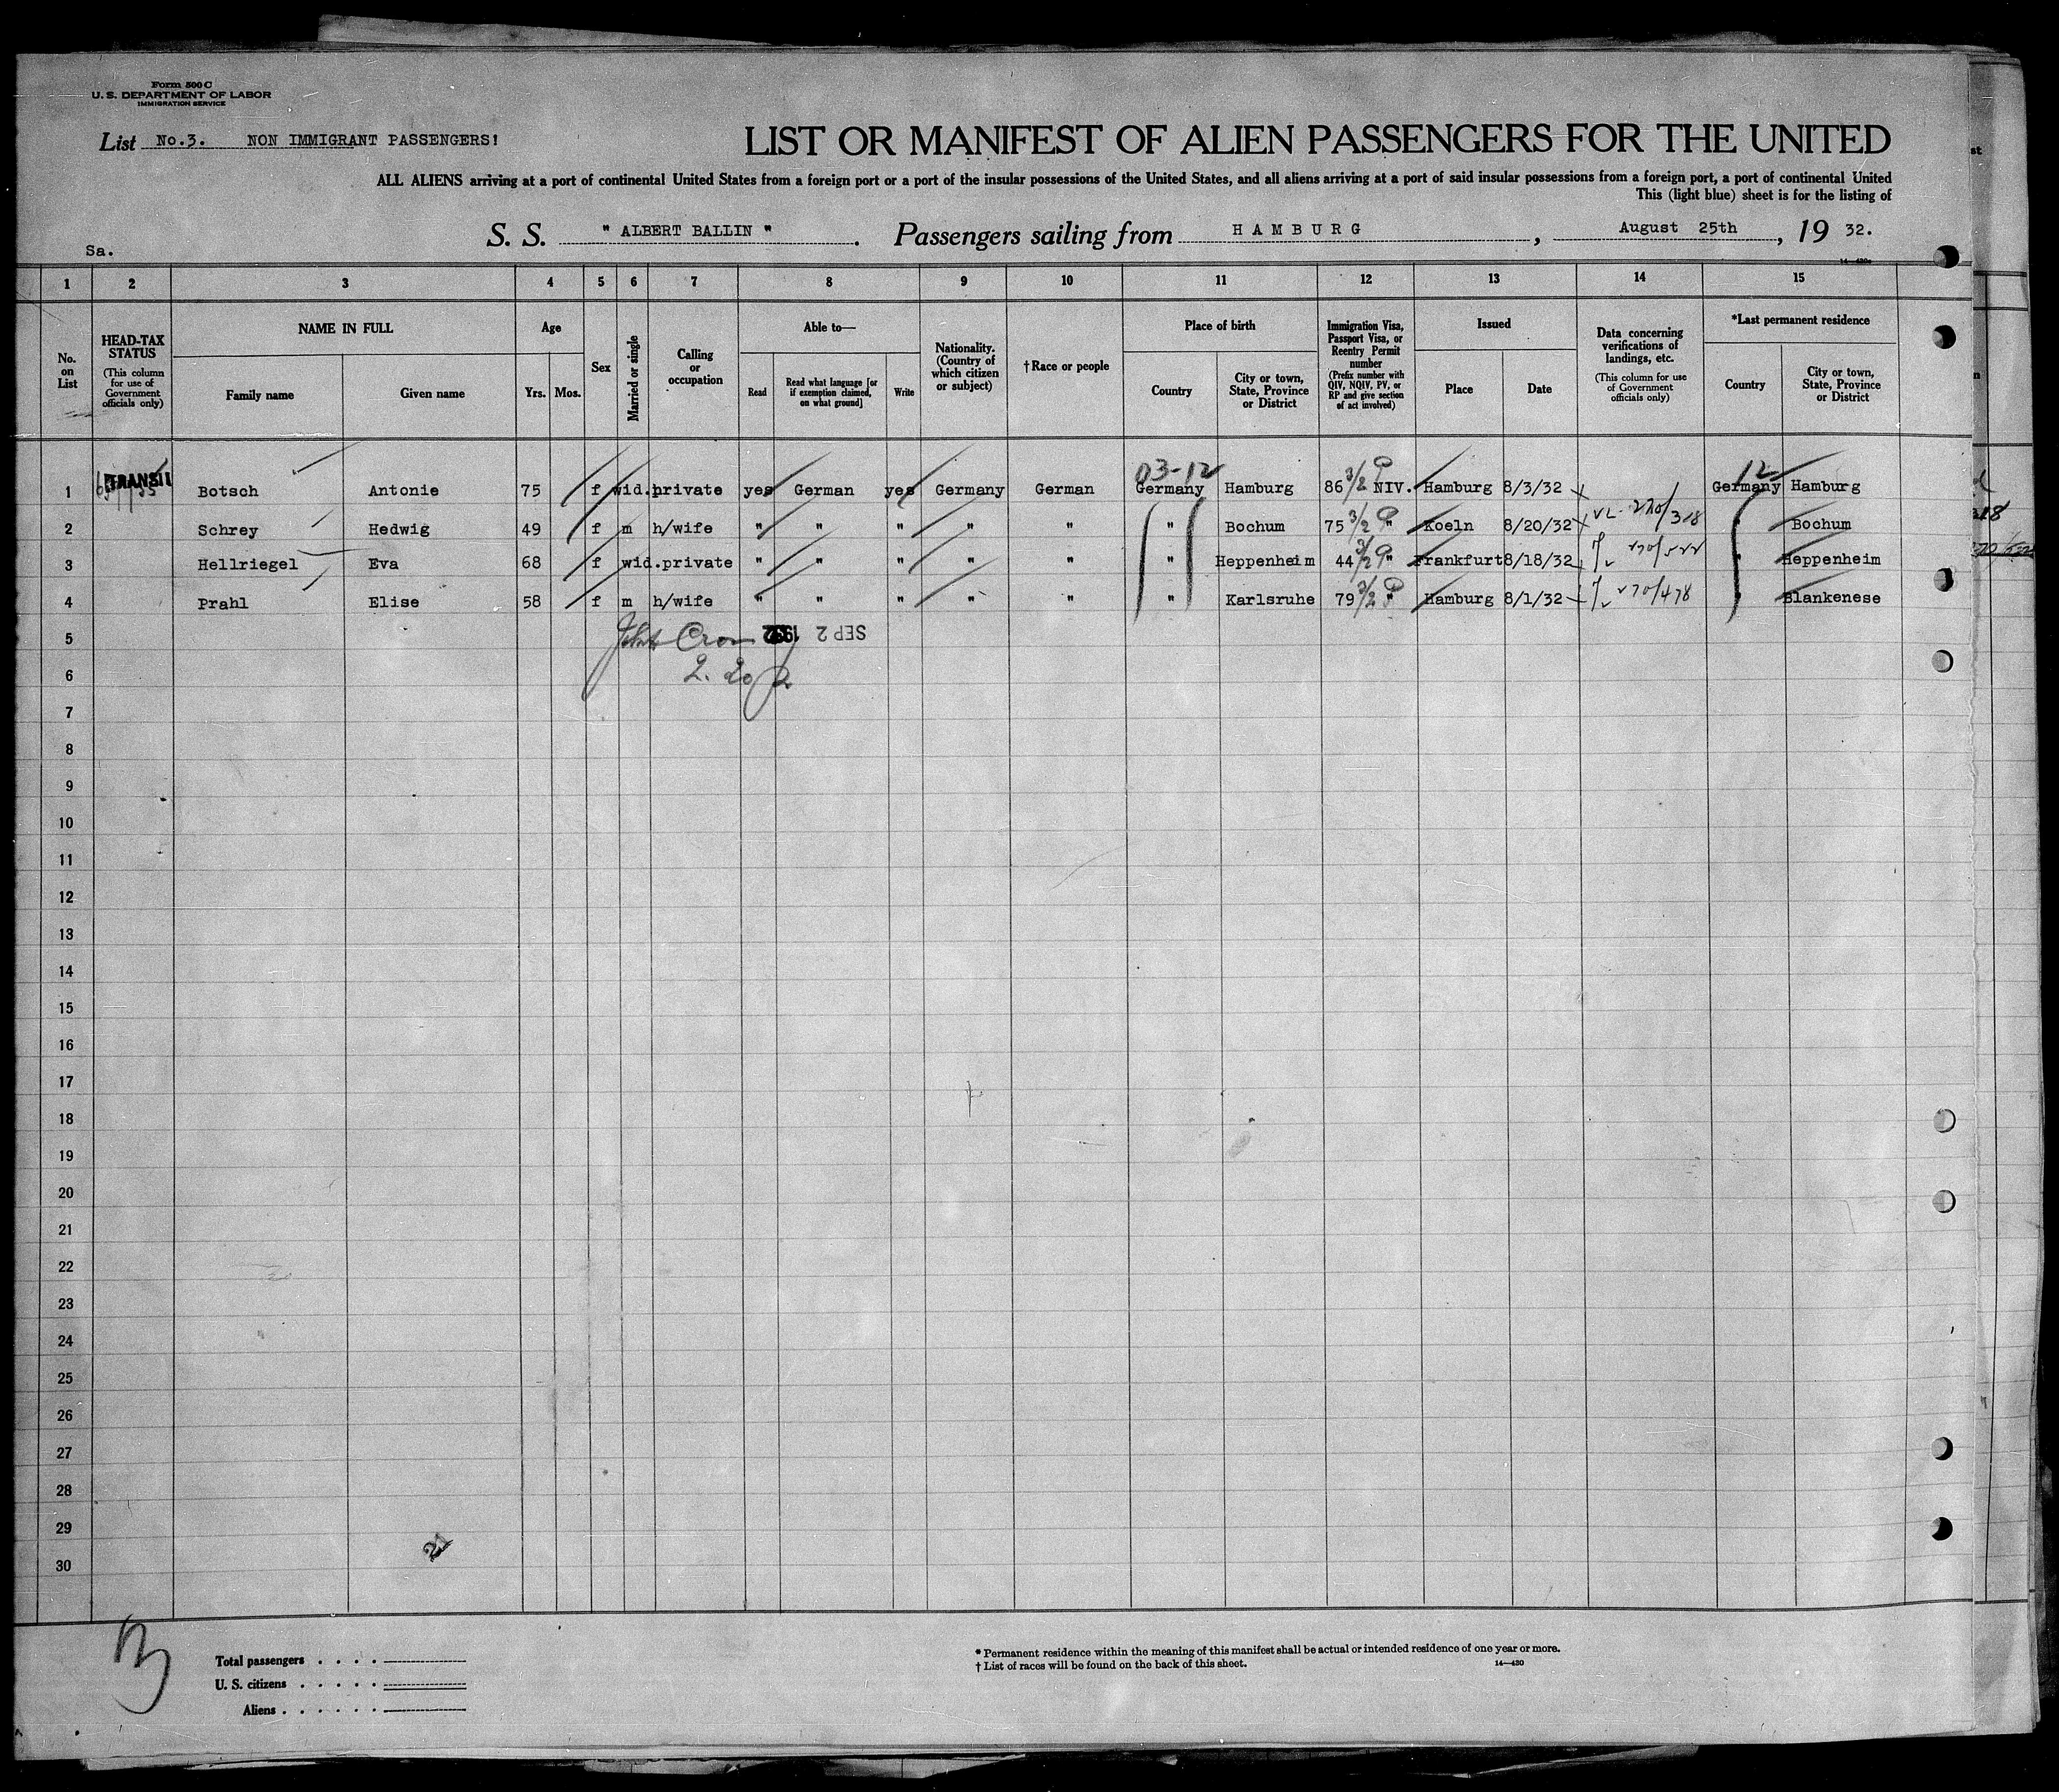 Form 500 C
U. S. DEPARTMENT OF LABOR
IMMIGRATION SERVICE
List No.3. NON IMMIGRANT PASSENGERS!
LIST OR MANIFEST OF ALIEN PASSENGERS FOR THE UNITED
ALL ALIENS arriving at a port of continental United States from a foreign port or a port of the insular possessions of the United States, and all aliens arriving at a port of said insular possessions from a foreign port, a port of continental United
This (light blue) sheet is for the listing of
S. S. " ALBERT BALLIN ". Passengers sailing from HAMBURG, August 25th, 19 32.
Sa.
1 2 3 4 5 6 7 8 9 10 11 12 13 14 15
No. on List
HEAD-TAX STATUS (This column for use of Government officials only)
NAME IN FULL
Family name Given name
Age
Yrs. Mos.
Sex
Married or single
Calling or occupation
Able to—
Read Read what language [or if exemption claimed, on what ground] Write
Nationality. (Country of which citizen or subject)
†Race or people
Place of birth
Country City or town, State, Province or District
Immigration Visa, Passport Visa, or Reentry Permit number (Prefix number with QIV, NQIV, PV, or RP and give section of act involved)
Issued
Place Date
Data concerning verifications of landings, etc. (This column for use of Government officials only)
*Last permanent residence
Country City or town, State, Province or District
03-12 12
1 TRANSIT Botsch Antonie 75 f wid. private yes German yes Germany German Germany Hamburg 86 3/2 NIV. Hamburg 8/3/32 Germany Hamburg
2 Schrey Hedwig 49 f m h/wife " " " " " " Bochum 75 3/2 " Koeln 8/20/32 VL 270/318 " Bochum
3 Hellriegel Eva 68 f wid. private " " " " " " Heppenheim 44 3/2 " Frankfurt 8/18/32 " Heppenheim
4 Prahl Elise 58 f m h/wife " " " " " " Karlsruhe 79 3/2 " Hamburg 8/1/32 270/478 " Blankenese
5 SEP 2 1932
6
7
8
9
10
11
12
13
14
15
16
17
18
19
20
21
22
23
24
25
26
27
28
29
30
Total passengers
U. S. citizens
Aliens
* Permanent residence within the meaning of this manifest shall be actual or intended residence of one year or more.
† List of races will be found on the back of this sheet. 14—430